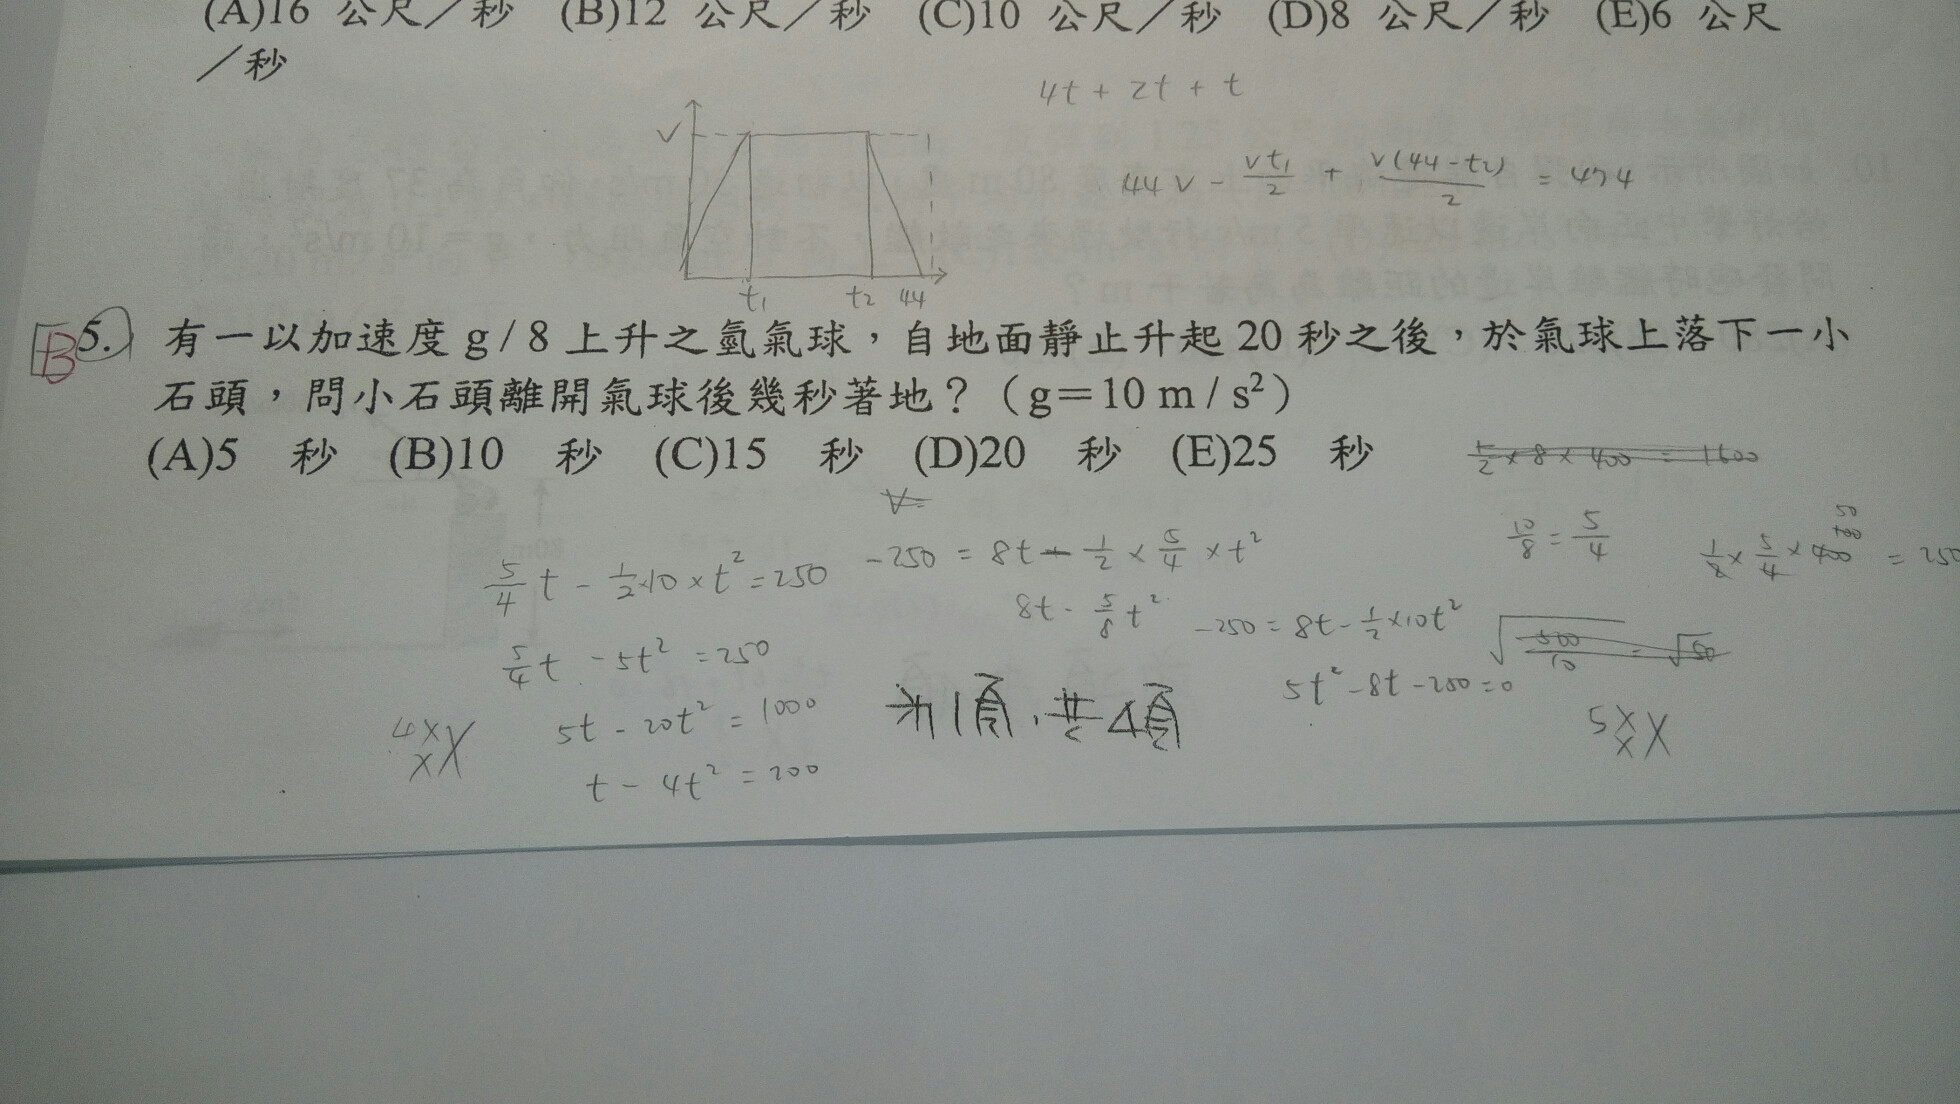 (A)16 公尺／秒 (B)12 公尺／秒 (C)10 公尺／秒 (D)8 公尺／秒 (E)6 公尺
／秒
4t + 2t + t
v
t₁ t₂ 44
44v - vt₁/2 + v(44-t₂)/2 = 474
B
5. 有一以加速度 g / 8 上升之氫氣球，自地面靜止升起 20 秒之後，於氣球上落下一小
石頭，問小石頭離開氣球後幾秒著地？（g＝10 m / s²）
(A)5 秒 (B)10 秒 (C)15 秒 (D)20 秒 (E)25 秒
1/2 × 8 × 400 = 1600
v=
10/8 = 5/4
1/2 × 5/4 × 400 = 250
5/4 t - 1/2 × 10 × t² = 250
-250 = 8t - 1/2 × 5/4 × t²
8t - 5/8 t²
-250 = 8t - 1/2 × 10t²
√500/10 = √50
5/4 t - 5t² = 250
5t² - 8t - 250 = 0
5t - 20t² = 1000
t - 4t² = 200